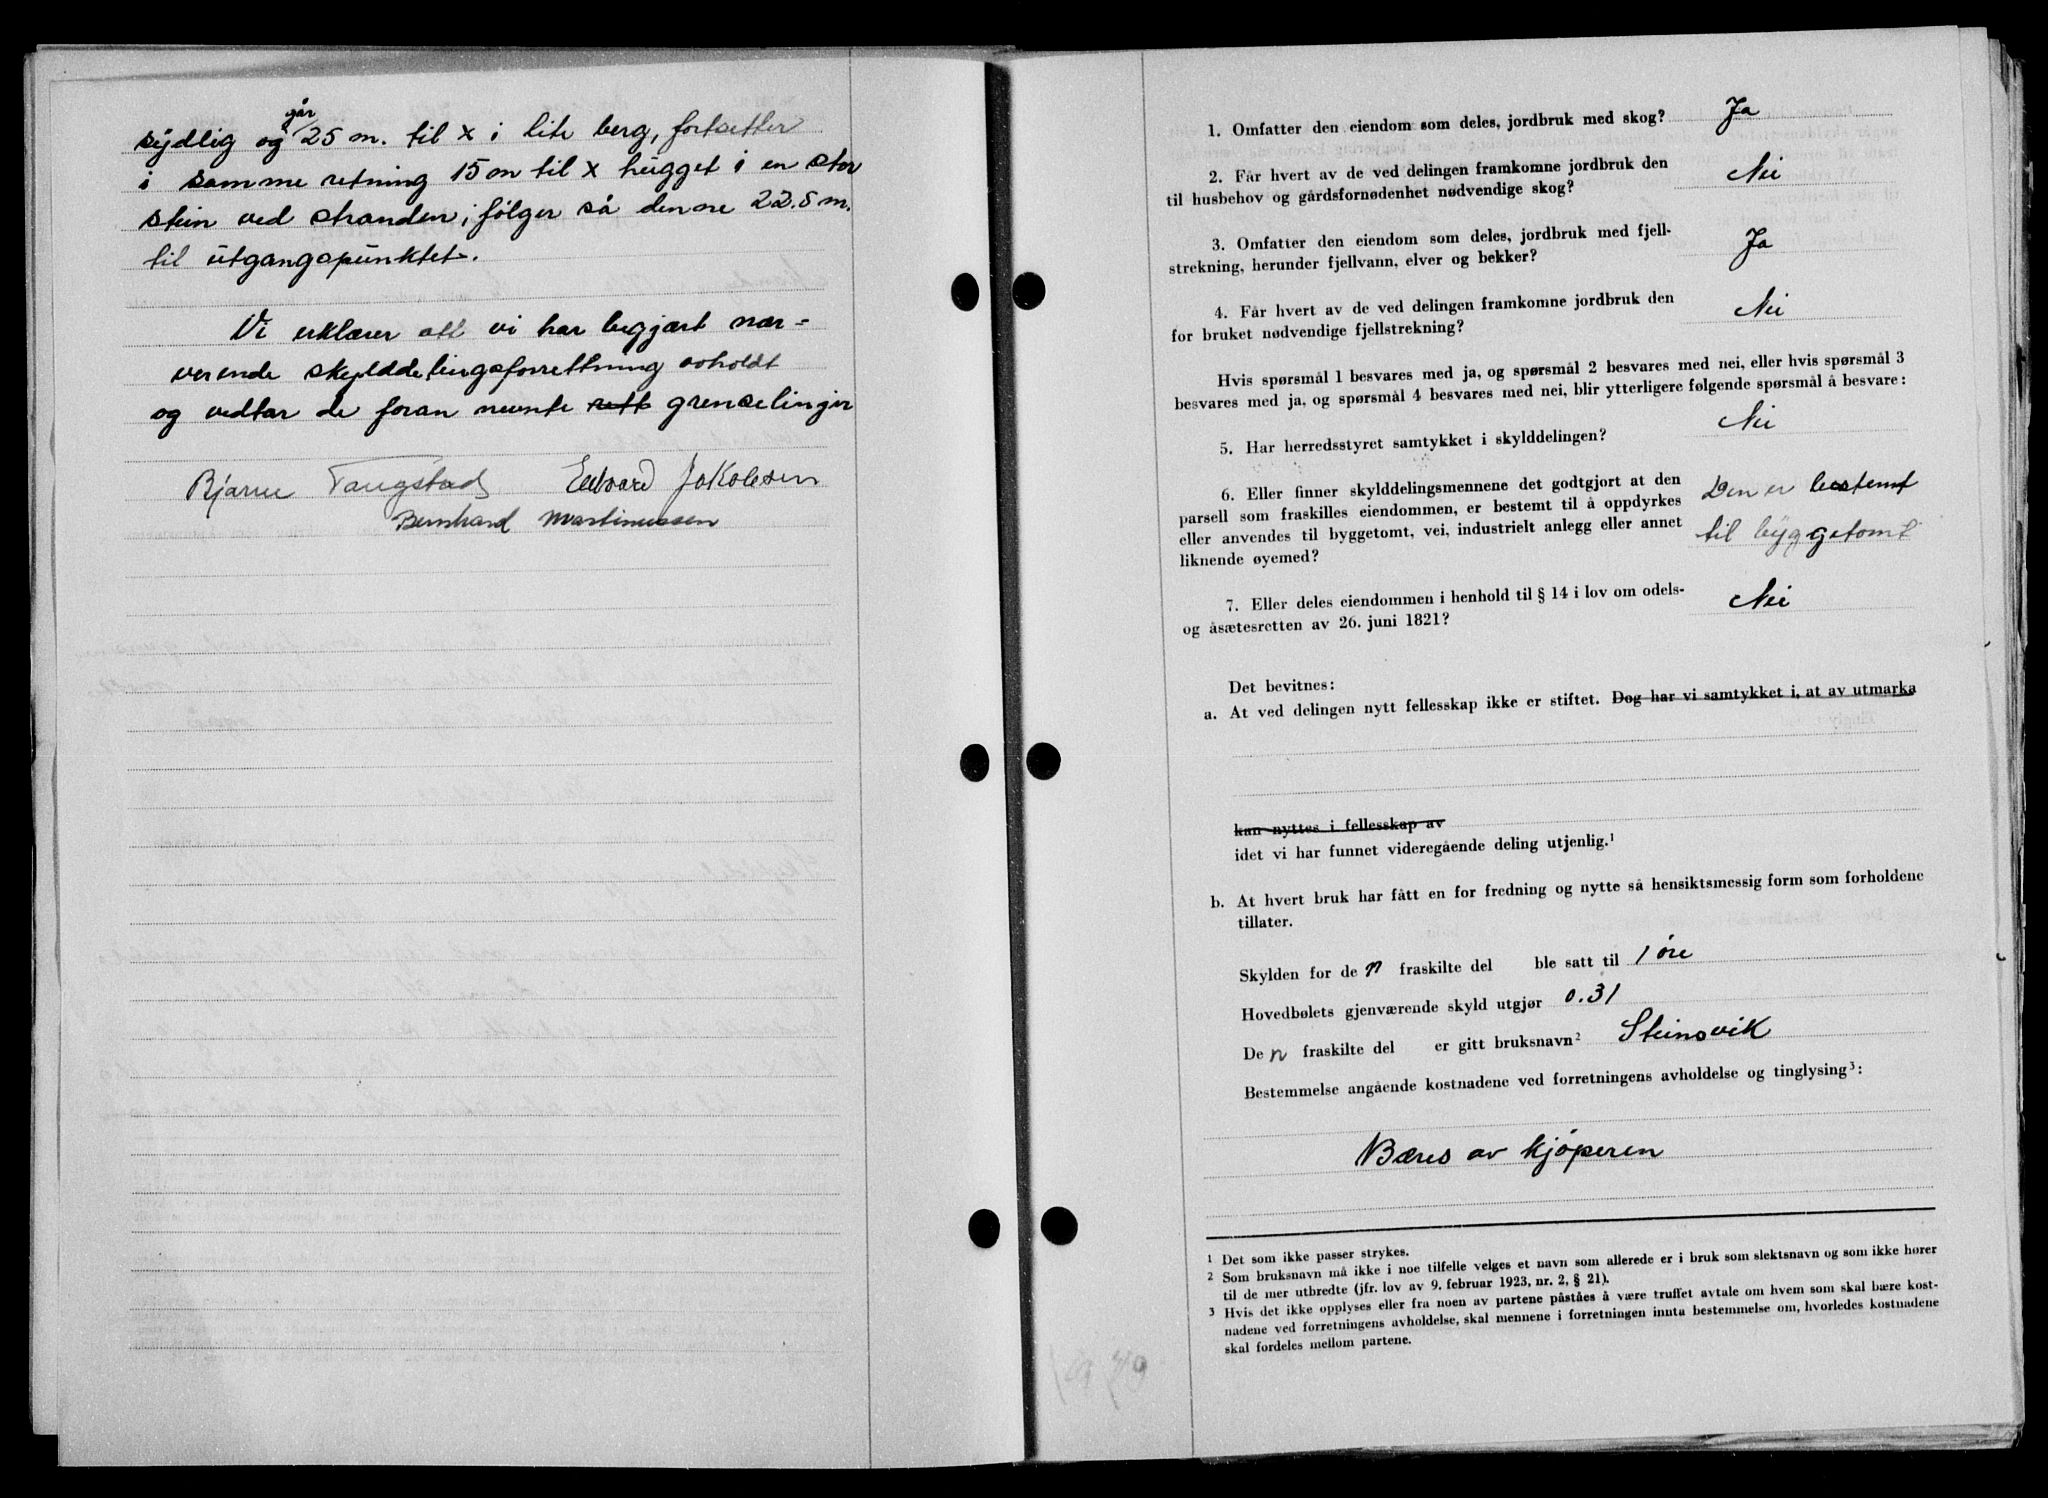 går
sydlig og 25 m. til x i lite berg, fortsetter
i samme retning 15 m til x hugget i en stor
stein ved stranden, følger så denne 22.5 m.
til utgangspunktet.
Vi erklærer att vi har begjært nær-
verende skylddelingsforrettning avholdt
og vedtar de foran nevnte rett grenselinjer
Bjarne Tangstad Edvard Jakobsen
Bernhard Martinussen
1. Omfatter den eiendom som deles, jordbruk med skog? Ja
2. Får hvert av de ved delingen framkomne jordbruk den
til husbehov og gårdsfornødenhet nødvendige skog? Nei
3. Omfatter den eiendom som deles, jordbruk med fjell-
strekning, herunder fjellvann, elver og bekker? Ja
4. Får hvert av de ved delingen framkomne jordbruk den
for bruket nødvendige fjellstrekning? Nei
Hvis spørsmål 1 besvares med ja, og spørsmål 2 besvares med nei, eller hvis spørsmål 3
besvares med ja, og spørsmål 4 besvares med nei, blir ytterligere følgende spørsmål å besvare:
5. Har herredsstyret samtykket i skylddelingen? Nei
6. Eller finner skylddelingsmennene det godtgjort at den
parsell som fraskilles eiendommen, er bestemt til å oppdyrkes
eller anvendes til byggetomt, vei, industrielt anlegg eller annet
liknende øyemed?
Den er bestemt
til byggetomt
7. Eller deles eiendommen i henhold til § 14 i lov om odels-
og åsætesretten av 26. juni 1821? Nei
Det bevitnes:
a. At ved delingen nytt fellesskap ikke er stiftet. Dog har vi samtykket i, at av utmarka
kan nyttes i fellesskap av
idet vi har funnet videregående deling utjenlig.¹
b. At hvert bruk har fått en for fredning og nytte så hensiktsmessig form som forholdene
tillater.
Skylden for de n fraskilte del ble satt til 1 øre
Hovedbølets gjenværende skyld utgjør 0.31
De n fraskilte del er gitt bruksnavn² Steinsvik
Bestemmelse angående kostnadene ved forretningens avholdelse og tinglysing³:
Bæres av kjøperen
¹ Det som ikke passer strykes.
² Som bruksnavn må ikke i noe tilfelle velges et navn som allerede er i bruk som slektsnavn og som ikke hører
til de mer utbredte (jfr. lov av 9. februar 1923, nr. 2, § 21).
³ Hvis det ikke opplyses eller fra noen av partene påståes å være truffet avtale om hvem som skal bære kost-
nadene ved forretningens avholdelse, skal mennene i forretningen innta bestemmelse om, hvorledes kostnadene
skal fordeles mellom partene.